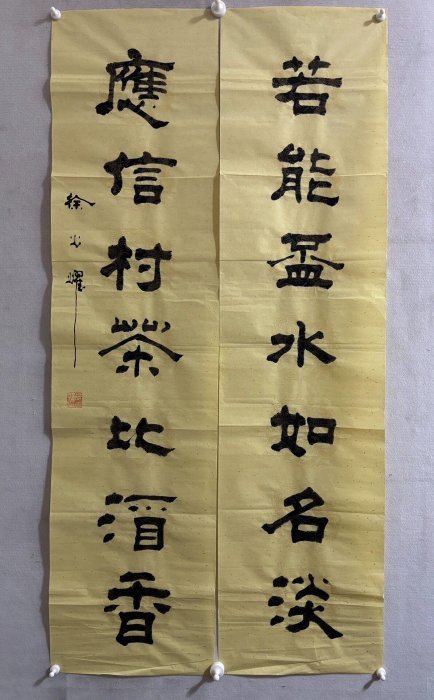 若能盃水如名淡
應信村茶比酒香
徐光耀